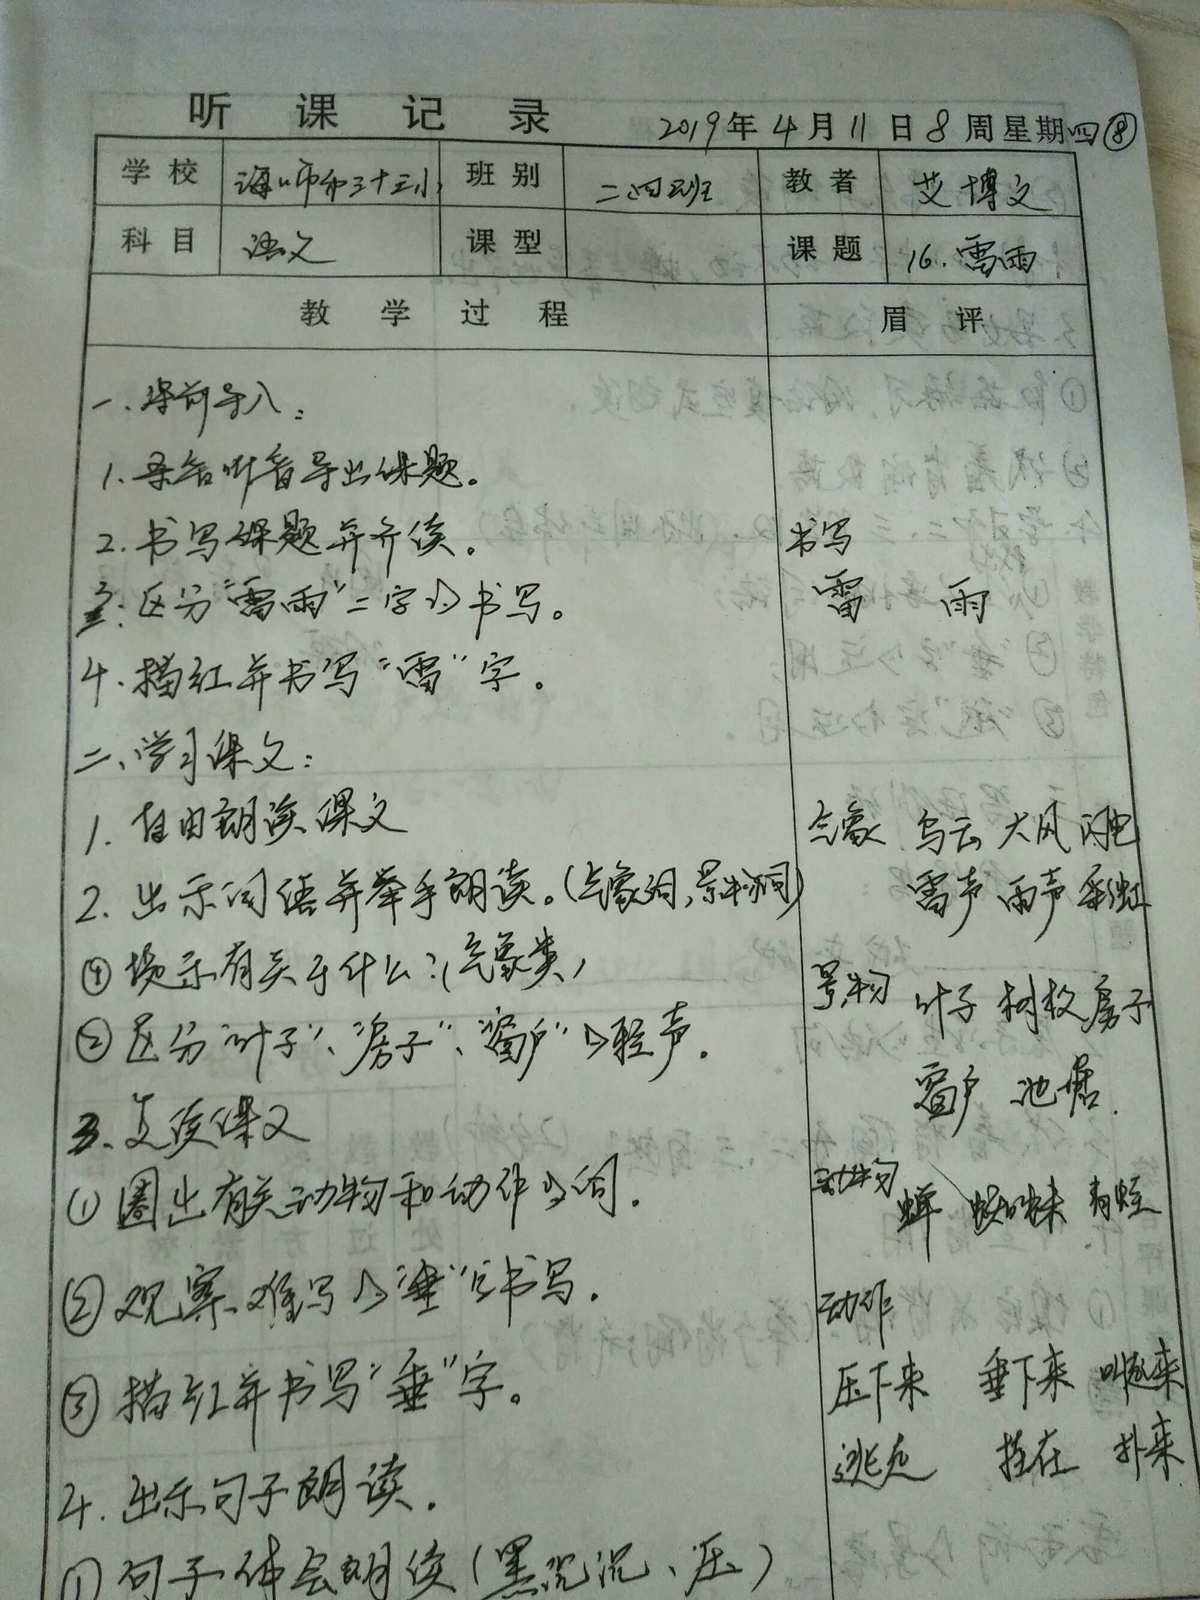 听课记录 2019年4月11日8周星期四⑧
学校 海口市第三十三小 班别 二(四)班 教者 艾博文
科目 语文 课型 课题 16.雷雨
教学过程 眉评
一.课前导入:
1.录音听音导出课题。
2.书写课题并齐读。 书写
3.区分“雷雨”二字的书写。 雷 雨
4.描红并书写“雷”字。
二、学习课文:
1.自由朗读课文 气象 乌云 大风 闪电
2.出示词语并举手朗读。(气象词,景物词) 雷声 雨声 彩虹
提示有关于什么?(气象类) 景物 叶子 树枝 房子
②区分“叶子”、“房子”、“窗户”的轻声。 窗户 池塘
3.复读课文
①圈出有关动物和动作的词. 动物 蝉 蜘蛛 青蛙
②观察、难写的“垂”的书写. 动作
③描红并书写“垂”字。 压下来 垂下来 叫起来
4.出示句子朗读. 逃走 挂在 扑来
①句子体会朗读(黑沉沉、压)